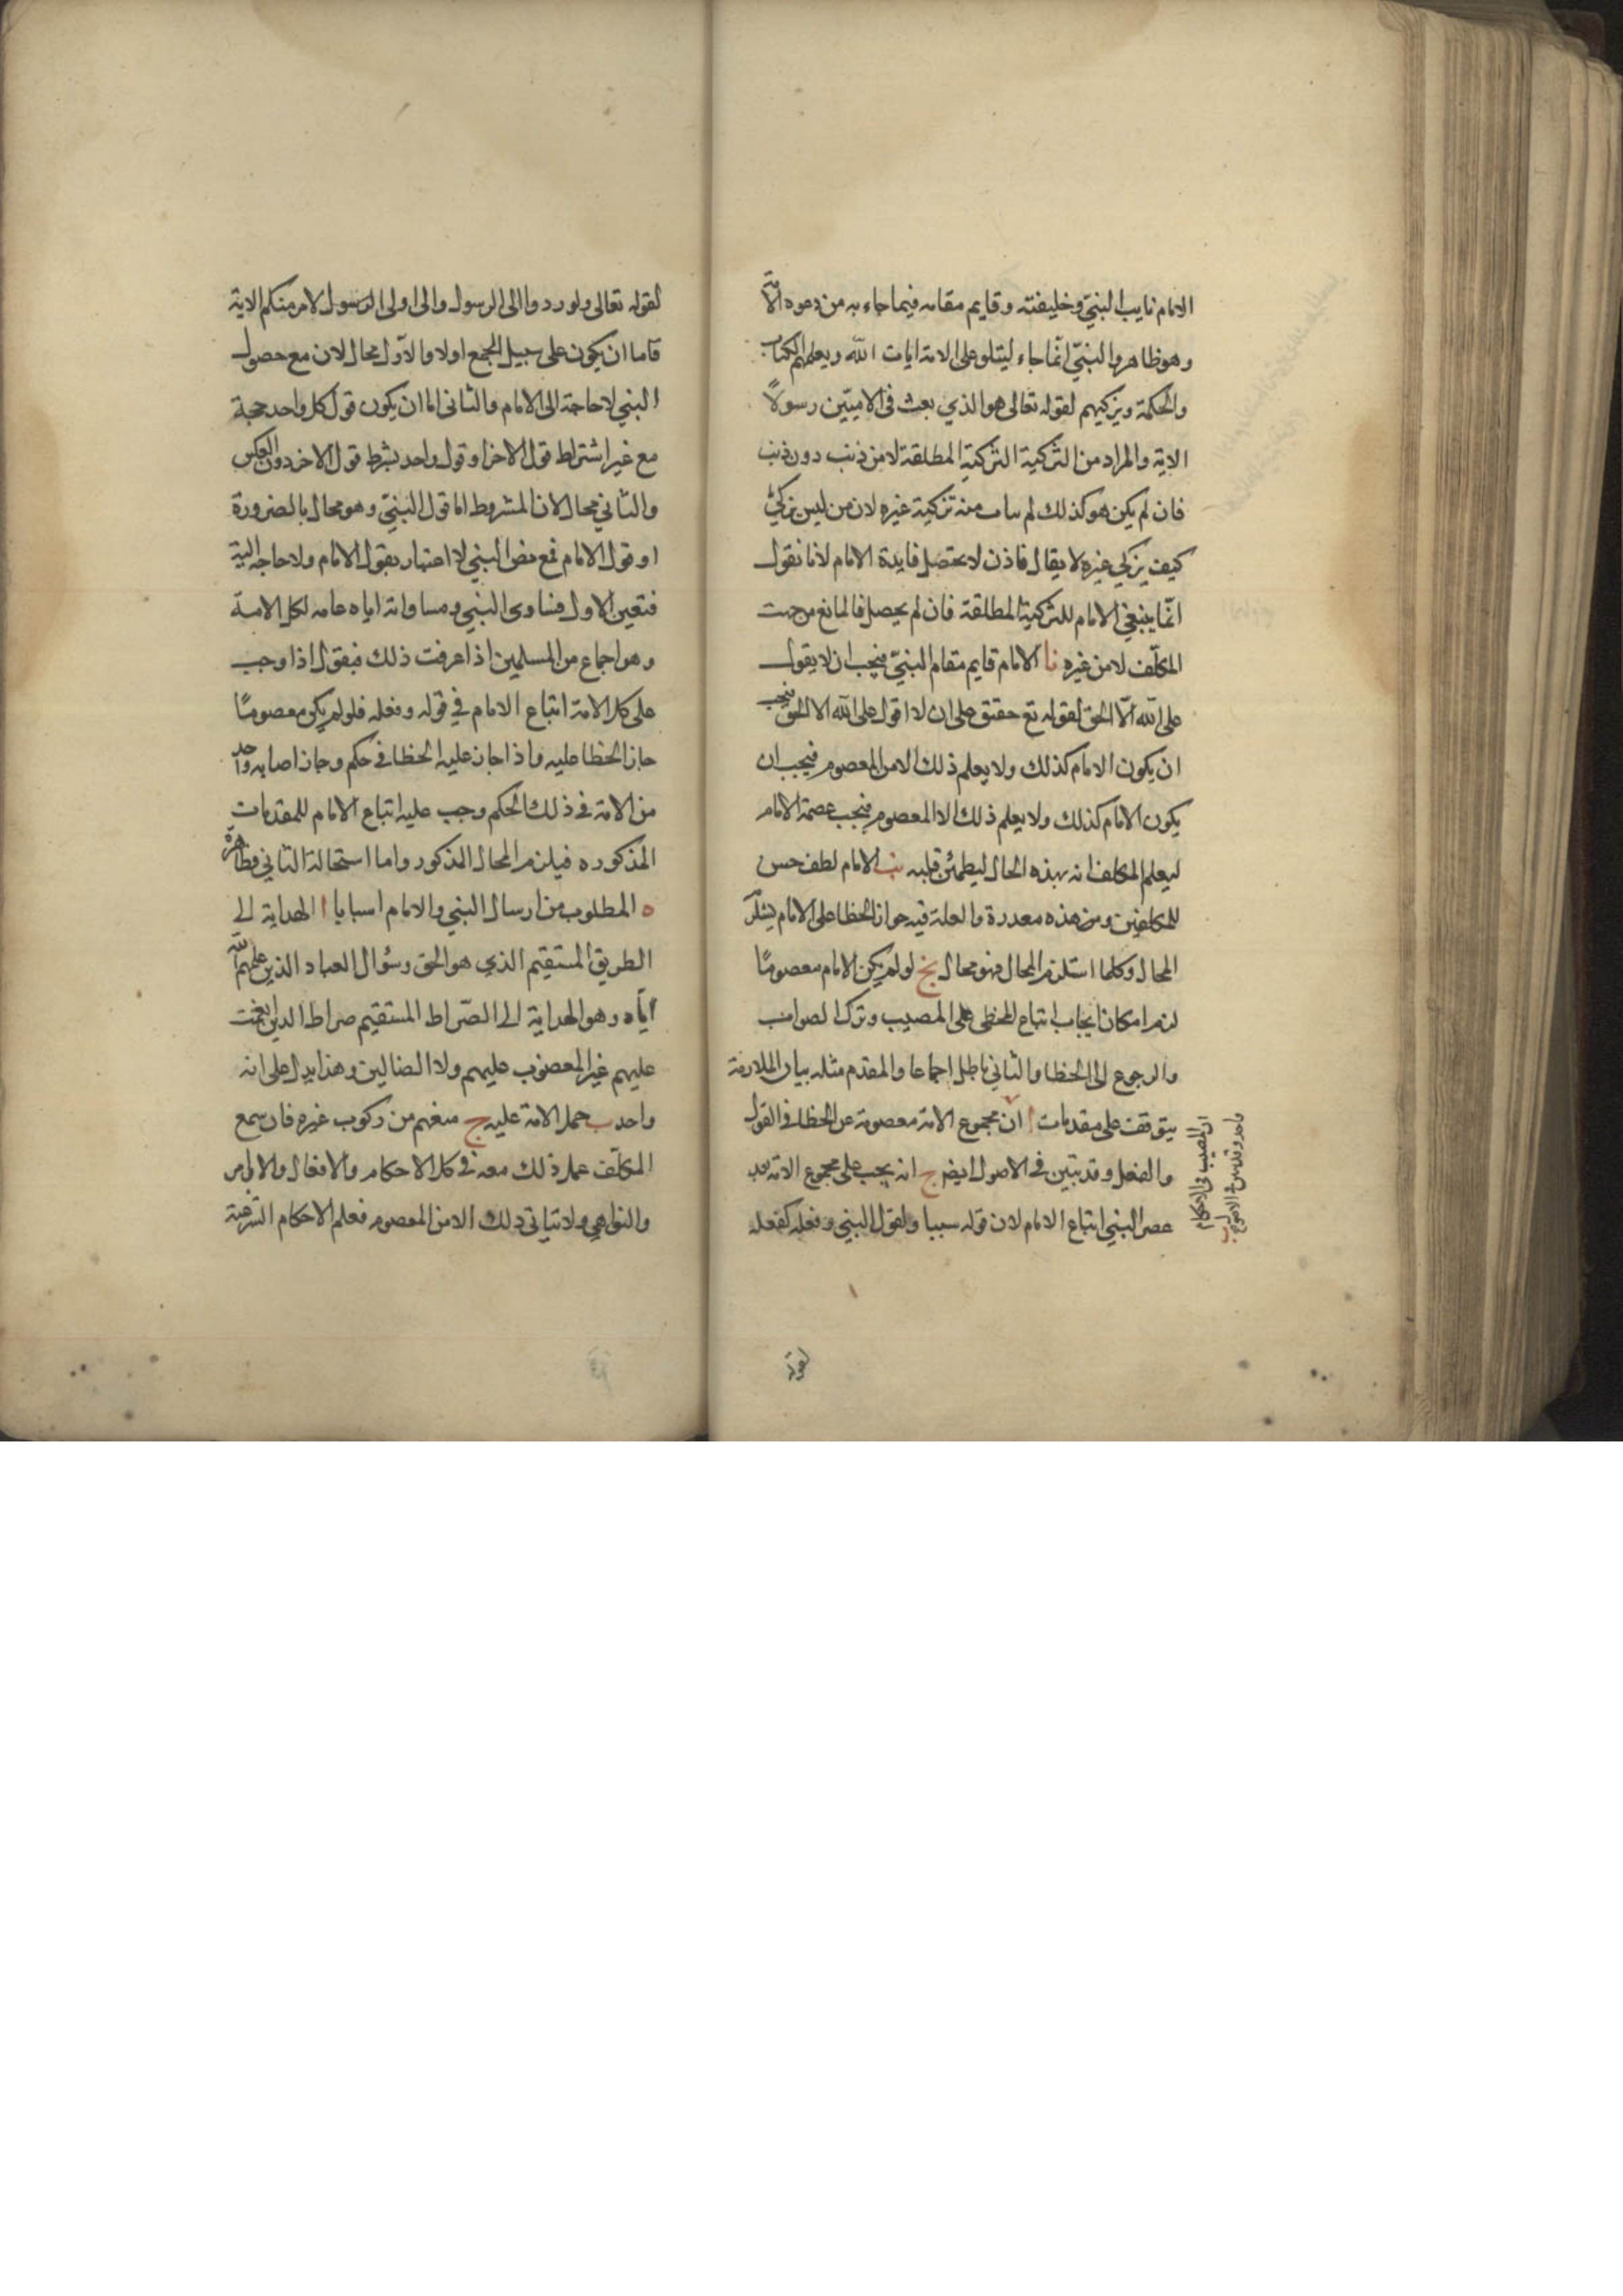 الامام نايب النبي وخليفته وقايم مقامه فيما جاء به من دعوه
وهو ظاهر والنبي انما جاء ليتلو على الامة ايات الله ويعلمهم الكتاب
والحكمة ويزكيهم لقوله تعالى هو الذي بعث في الاميين رسولا
الاية والمراد من التزكية التزكية المطلقة لا من ذنب دون ذنب
فان لم يكن هو كذلك لم منه تزكية غيره لان من ليس بزكي
كيف يزكي غيره لا يقال فاذن لا يحصل فايدة الامام لانا نقول
انما ينبغي الامام للتزكية المطلقة فان لم يحصل فالمانع من جهت
المكلف لا من غيره نا الامام قايم مقام النبي فيجب ان لا يقول
على الله الا الحق لقوله تع حقيق على ان لا اقول على الله الا الحق فيجب
ان يكون الامام كذلك ولا يعلم ذلك الا من المعصوم فيجب ان
يكون الامام كذلك ولا يعلم ذلك الا المعصوم فيجب عصمة الامام
ليعلم المكلف انه بهذه الحال ليطمئن قلبه نب الامام لطف حسن
للمكلفين ومن هذه والعلة فيه جواز الخطا على الامام يستلزم
المحال وكلما استلزم المحال فهو محال نج لو لم يكن الامام معصوما
لزم امكان ايجاب اتباع المخطى على المصيب وترك الصواب
والرجوع الى الخطا والثاني باطل اجماعا والمقدم مثله بيان الملازمة
يتوقف على مقدمات ا ان مجموع الامة معصومة عن الخطا في القول
والفعل وقد تبين في الاصول ايضا ج انه يجب على مجموع الامة بعد
عصر النبي اتباع الامام لان قوله سببا ولقول النبي وفعله كفعله
ب ان المصيب في الاحكام
واحد وقد تبين في الاصول
لقوله
لقوله تعالى ولو ردوا الى الرسول والى اولى الرسول الامر منكم الاية
فاما ان يكون على سبيل الجمع اولا والاول محال لان مع حصول
النبي لا حاجة الى الامام والثاني اما ان يكون قول كل واحد حجة
مع غير اشتراط قول الاخر او قول واحد بشرط قول الاخر دون العكس
والثاني محال لان المشروط اما قول النبي وهو محال بالضرورة
او قول الامام فمع نص النبي لا اعتبار بقول الامام ولا حاجة اليه
فتعين الاول فساوى النبي ومساواته اياه عامه لكل الامة
وهو اجماع من المسلمين اذا عرفت ذلك فنقول اذا وجب
على كل الامة اتباع الامام في قوله وفعله فلو لم يكن معصوما
جاز الخطا عليه واذا جاز عليه الخطا في حكم وجاز اصابه واحد
من الامة في ذلك الحكم وجب عليه اتباع الامام للمقدمات
المذكوره فيلزم المحال المذكور واما استحالة الثاني فظاهرة
ه المطلوب من ارسال النبي والامام اسبابا ا الهداية الى
الطريق المستقيم الذي هو الحق وسؤال العباد الذين علمهم الله
اياه وهو الهداية الى الصراط المستقيم صراط الذين انعمت
عليهم غير المغضوب عليهم ولا الضالين وهذا يدل على انه
واحد ب حمل الامة عليه ج منعهم من ركوب غيره فان سمع
المكلف عمل ذلك معه في كل الاحكام والافعال والاوامر
والنواهي ولا يتاتي ذلك الا من المعصوم فعلم الاحكام الشرعية